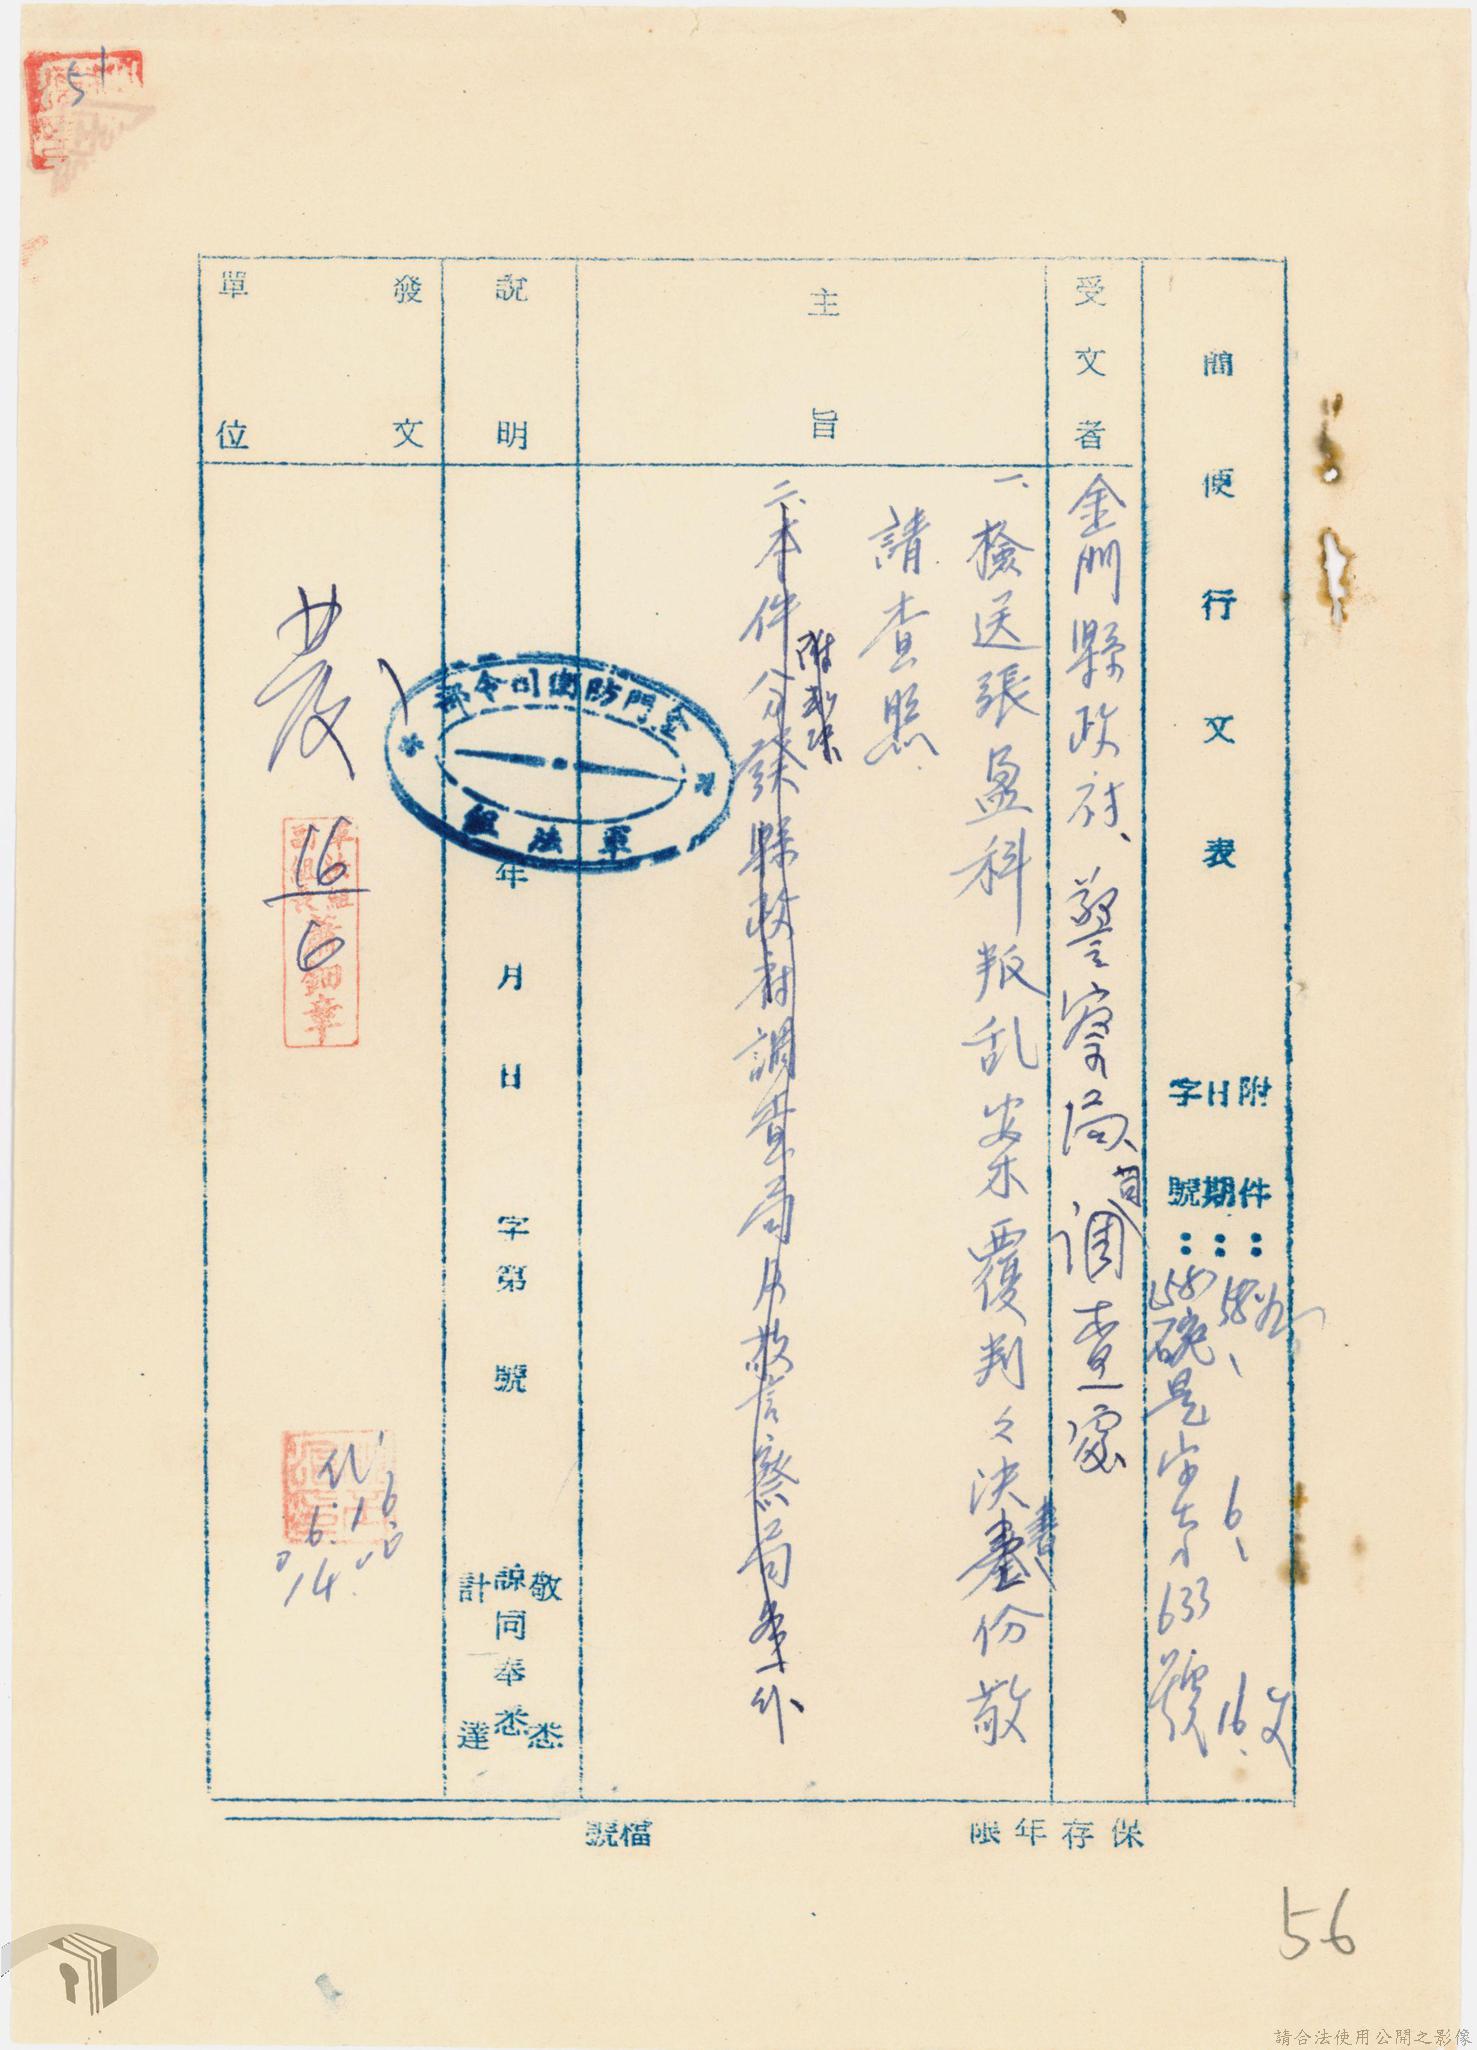 簡便行文表
附件：
日期：58、6、16、
字號：
633號
受文者
金門縣政府、警察局、調查處
主旨
一、檢送張盈科叛乱案覆判々決書壹份敬
請查照
二、本件分發縣政府調查局及警察局各一份
說明
年 月 日 字第 號
敬悉
諒同奉悉
計達
發文
單位
金門防衛司令部
軍法組
發
16/6
檔號
保存年限
51
56
請合法使用公開之影像